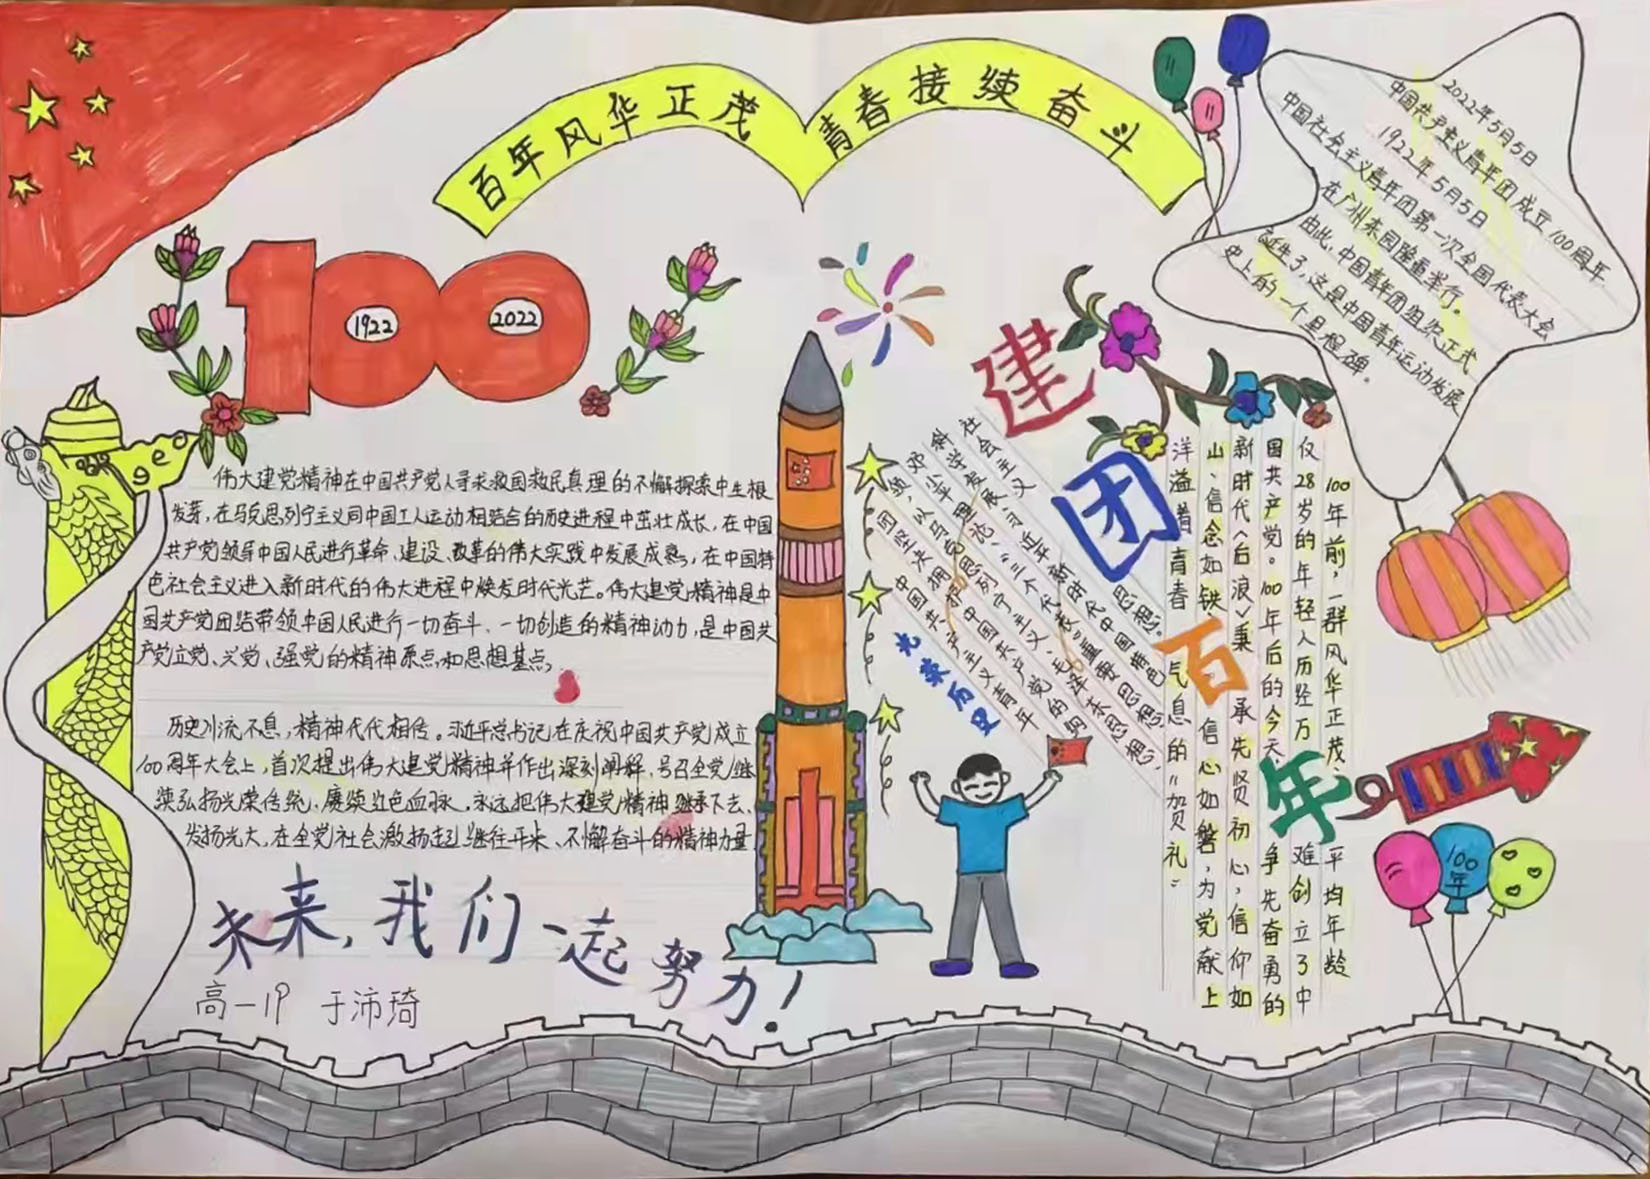 百年风华正茂 青春接续奋斗
100
1922
2022
伟大建党精神在中国共产党人寻求救国救民真理的不懈探索中生根
发芽,在马克思列宁主义同中国工人运动相结合的历史进程中茁壮成长,在中国
共产党领导中国人民进行革命、建设、改革的伟大实践中发展成熟,在中国特
色社会主义进入新时代的伟大进程中焕发时代光芒。伟大建党精神是中
国共产党团结带领中国人民进行一切奋斗、一切创造的精神动力,是中国共
产党立党、兴党、强党的精神原点和思想基点。
历史川流不息,精神代代相传。习近平总书记在庆祝中国共产党成立
100周年大会上,首次提出伟大建党精神并作出深刻阐释,号召全党继
续弘扬光荣传统、赓续红色血脉,永远把伟大建党精神继承下去、
发扬光大,在全党社会激扬起继往开来、不懈奋斗的精神力量
未来,我们一起努力!
高一19 于沛琦
2022年5月5日
中国共产主义青年团成立100周年
1922年5月5日
中国社会主义青年团第一次全国代表大会
在广州东园隆重举行。
由此,中国青年团组织正式
诞生了,这是中国青年运动发展
史上的一个里程碑。
建团百年
光荣历史
中国共产主义青年
团坚决拥护中国共产党的纲
领,以马克思列宁主义、毛泽东思想,
邓小平理论、“三个代表”重要思想、
科学发展、习近平新时代中国特色
社会主义 思想。
100年前,一群风华正茂、平均年龄
仅28岁的年轻人历经万难创立了中
国共产党。100年后的今天,争先奋勇的
新时代《后浪》秉承先贤初心,信仰如
山、信念如铁、信心如磐,为党献上
洋溢着青春气息的“贺礼”
100年